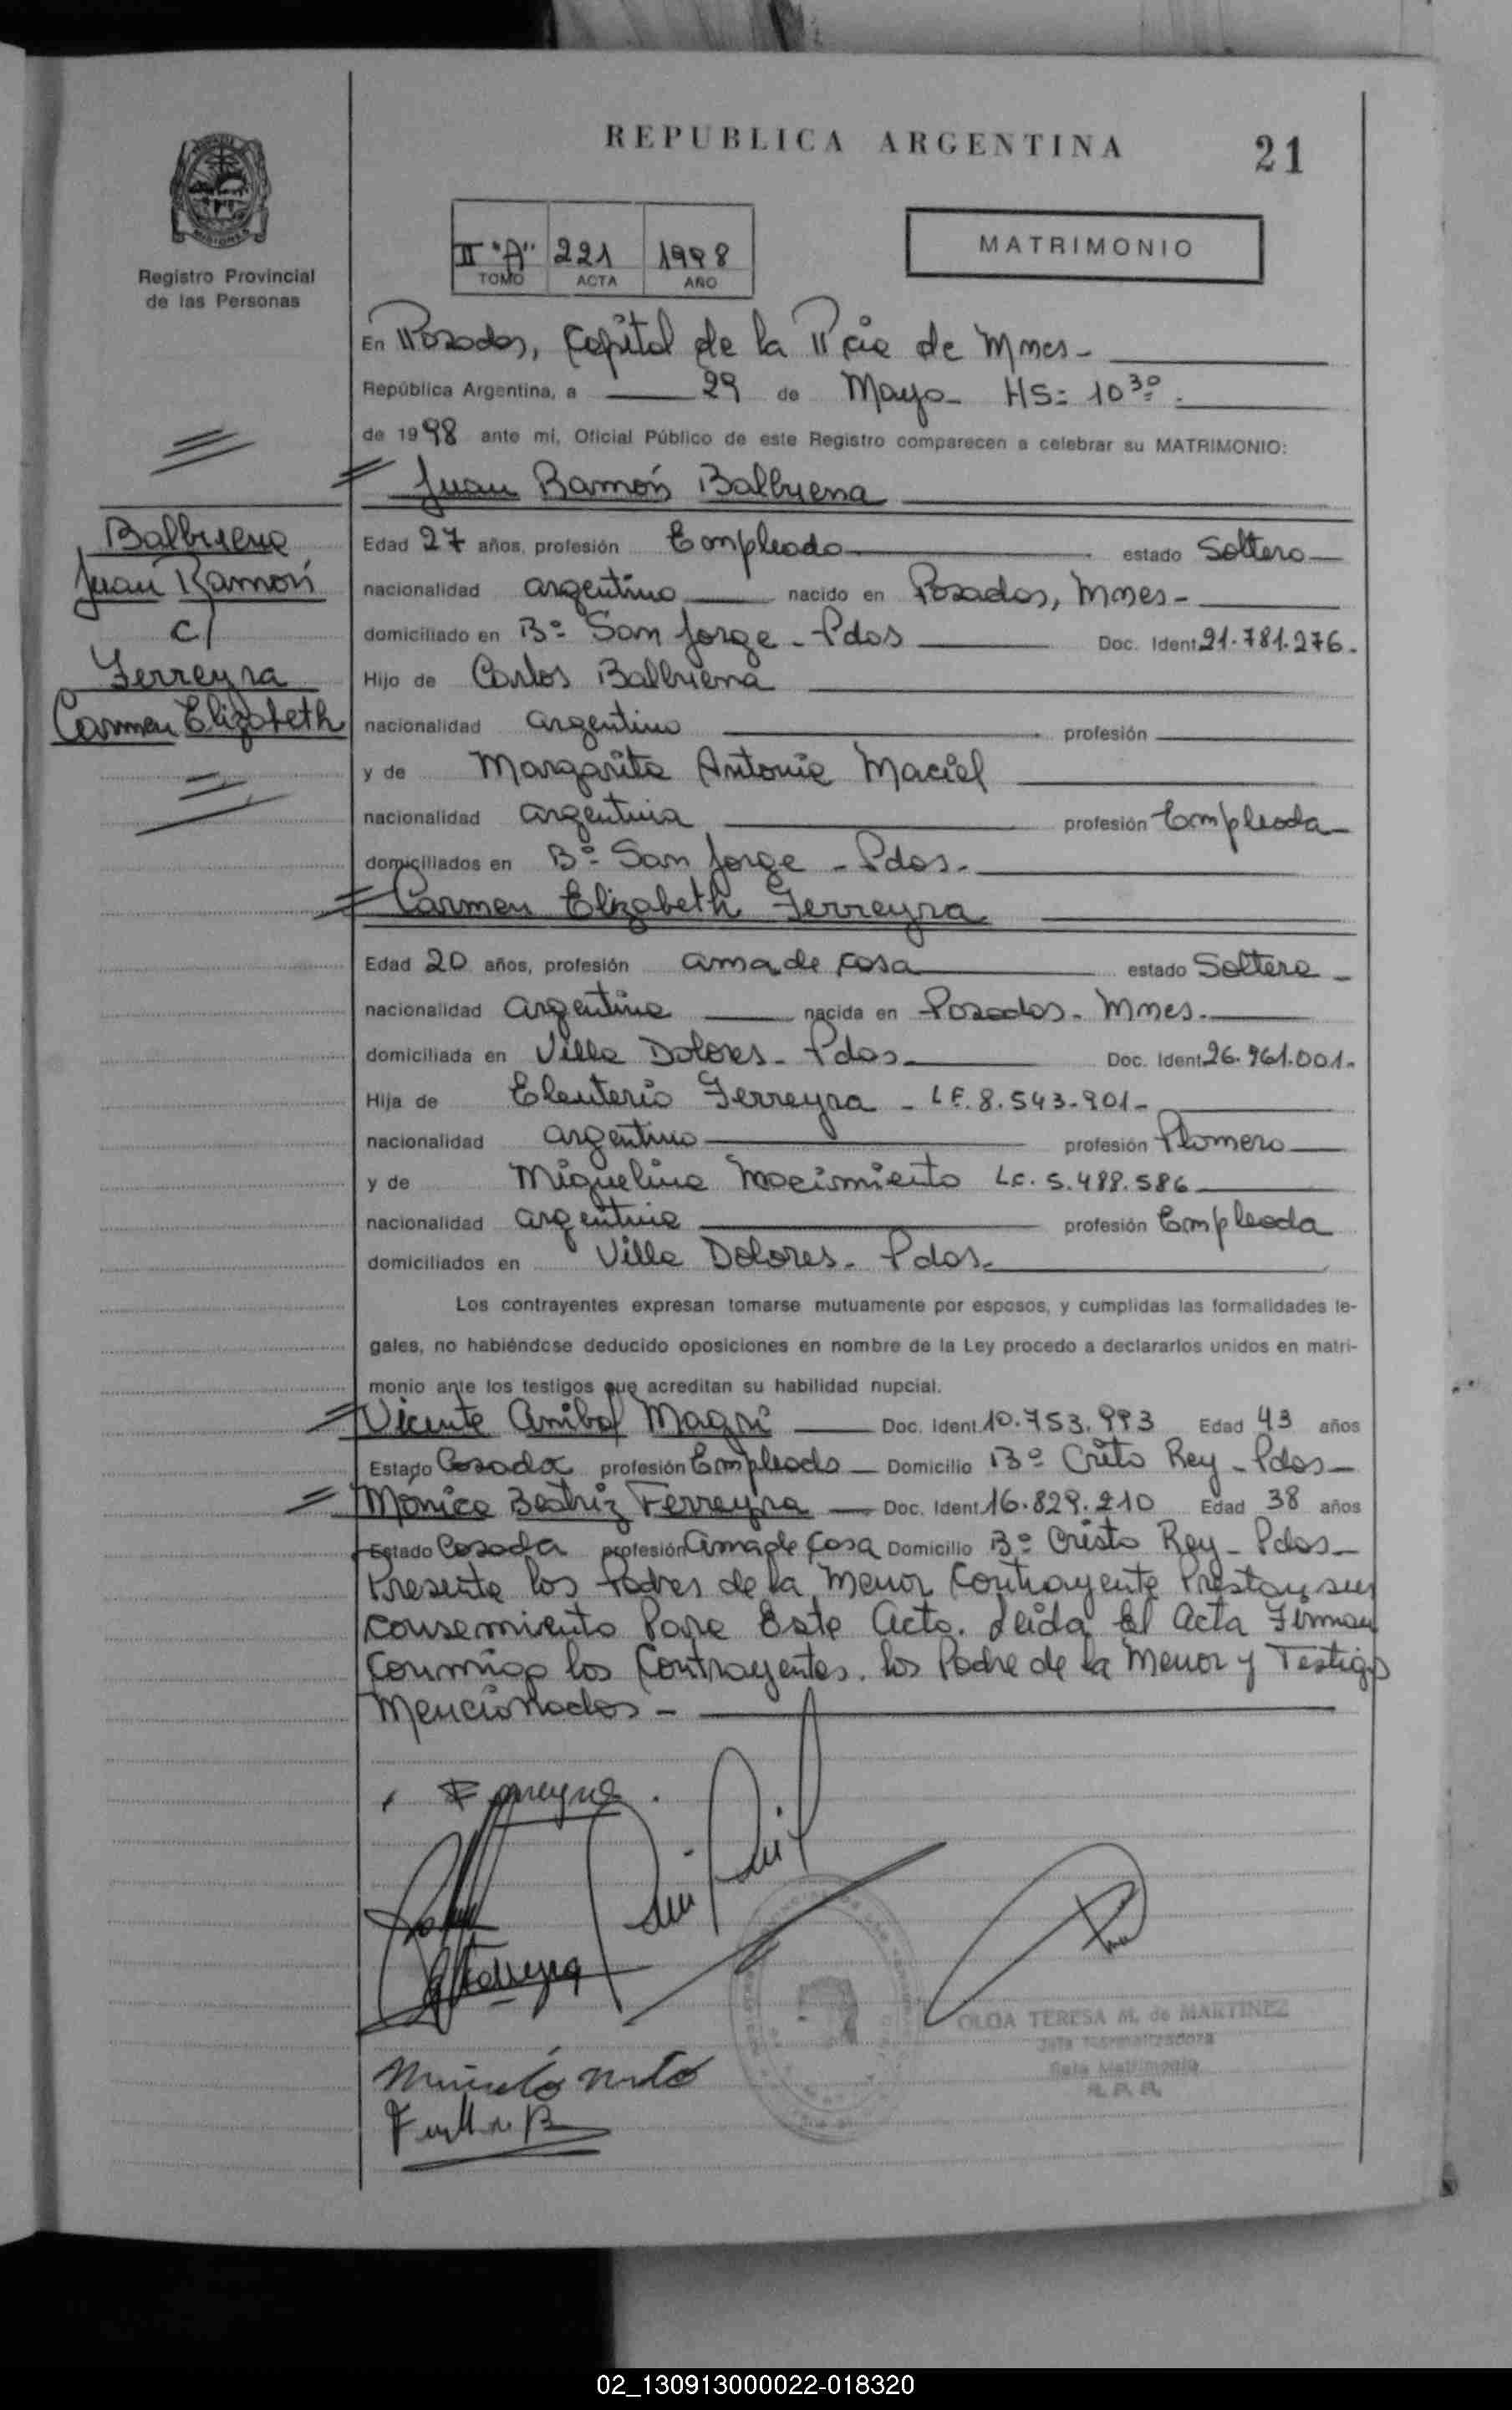 REPUBLICA ARGENTINA
21
MISIONES
Registro Provincial
de las Personas
II "A" 221 1998
TOMO ACTA AÑO
MATRIMONIO
En Posadas, Capital de la Pcia de Mnes-
República Argentina, a 29 de Mayo- HS: 10³⁰.
de 1998 ante mí, Oficial Público de este Registro comparecen a celebrar su MATRIMONIO:
Juan Ramón Balbuena
Balbuena
Juan Ramón
c/
Ferreyra
Carmen Elizabeth
Edad 27 años, profesión Empleado estado Soltero
nacionalidad argentino nacido en Posadas, Mnes-
domiciliado en Bº San Jorge - Pdas Doc. Ident. 21.781.276.
Hijo de Carlos Balbuena
nacionalidad argentino profesión
y de Margarita Antonia Maciel
nacionalidad argentina profesión Empleada
domiciliados en Bº San Jorge - Pdas.
Carmen Elizabeth Ferreyra
Edad 20 años, profesión ama de casa estado Soltera
nacionalidad argentina nacida en Posadas. Mnes.
domiciliada en Villa Dolores- Pdas Doc. Ident. 26.961.001.
Hija de Eleuterio Ferreyra - LE. 8.543.901-
nacionalidad argentino profesión Plomero
y de Miguelina Nacimiento LC. 5.488.586
nacionalidad argentina profesión Empleada
domiciliados en Villa Dolores. Pdas.
Los contrayentes expresan tomarse mutuamente por esposos, y cumplidas las formalidades le-
gales, no habiéndose deducido oposiciones en nombre de la Ley procedo a declararlos unidos en matri-
monio ante los testigos que acreditan su habilidad nupcial.
Vicente Anibal Magri Doc. Ident. 10.753.993 Edad 43 años
Estado Casado profesión Empleado Domicilio Bº Crito Rey - Pdas
Mónica Beatriz Ferreyra Doc. Ident. 16.829.210 Edad 38 años
Estado Casada profesión ama de casa Domicilio Bº Cristo Rey - Pdas
Presente los Padres de la menor Contrayente Prestan sus
consemiento Para Este Acto. Leida El Acta Firman
conmigo los Contrayentes. los Padre de la Menor y Testigos
Mencionados -
Ferreyra
OLGA TERESA M. de MARTINEZ
02_130913000022-018320